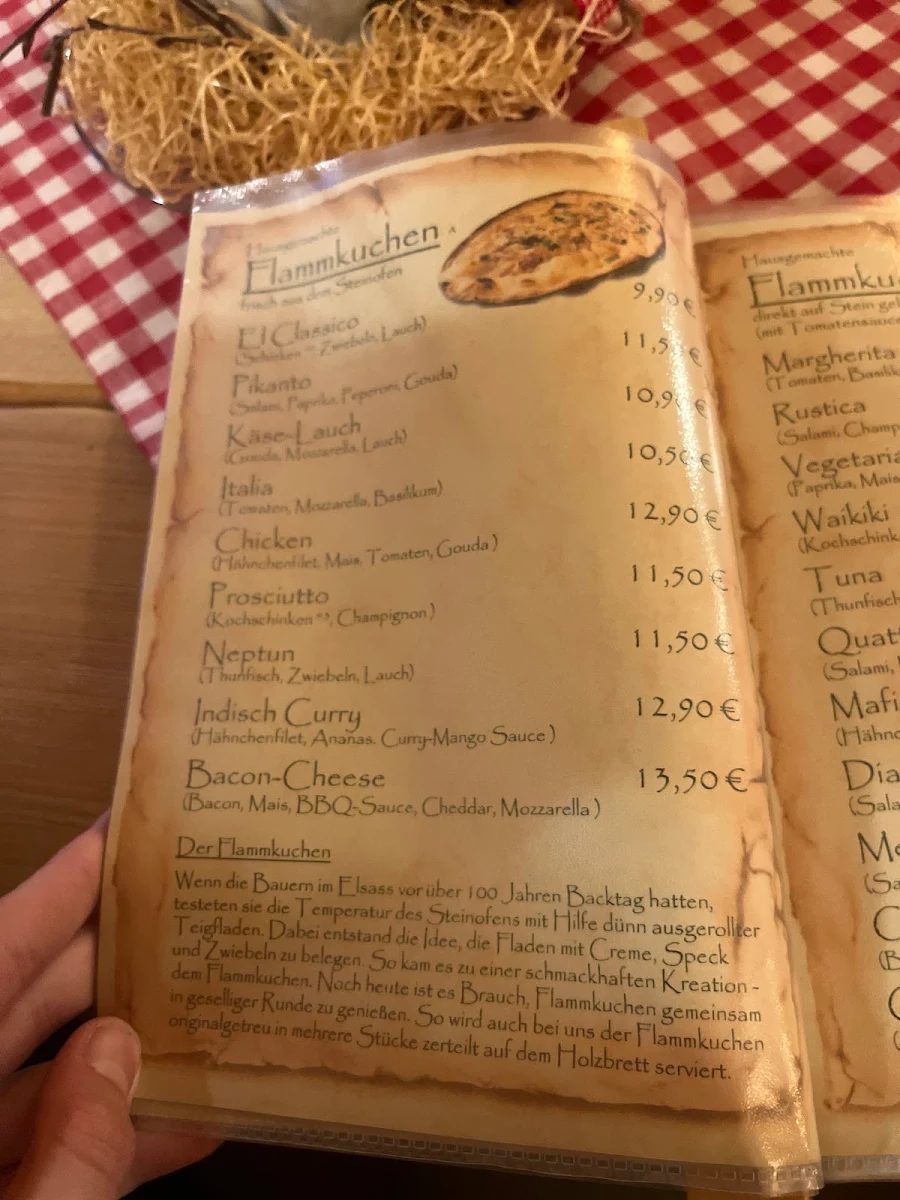 Hausgemachte
Flammkuchen A
frisch aus dem Steinofen
El Classico 9,90 €
(Schinken Zwiebeln, Lauch)
Pikanto 11,5 €
(Salami, Paprika, Peperoni, Gouda)
Käse-Lauch 10,9 €
(Gouda, Mozzarella, Lauch)
Italia 10,50 €
(Tomaten, Mozzarella, Basilikum)
Chicken 12,90 €
(Hähnchenfilet, Mais, Tomaten, Gouda)
Prosciutto 11,50 €
(Kochschinken, Champignon)
Neptun 11,50 €
(Thunfisch, Zwiebeln, Lauch)
Indisch Curry 12,90 €
(Hähnchenfilet, Ananas. Curry-Mango Sauce)
Bacon-Cheese 13,50 €
(Bacon, Mais, BBQ-Sauce, Cheddar, Mozzarella)
Der Flammkuchen
Wenn die Bauern im Elsass vor über 100 Jahren Backtag hatten,
testeten sie die Temperatur des Steinofens mit Hilfe dünn ausgerollter
Teigfladen. Dabei entstand die Idee, die Fladen mit Creme, Speck
und Zwiebeln zu belegen. So kam es zu einer schmackhaften Kreation -
dem Flammkuchen. Noch heute ist es Brauch, Flammkuchen gemeinsam
in geselliger Runde zu genießen. So wird auch bei uns der Flammkuchen
originalgetreu in mehrere Stücke zerteilt auf dem Holzbrett serviert.
Hausgemachte
Flammku
direkt auf Stein ge
(mit Tomatensauce
Margherita
(Tomaten, Basilik
Rustica
(Salami, Champ
Vegetaria
(Paprika, Mais
Waikiki
(Kochschink
Tuna
(Thunfisch
Quat
(Salami,
Mafi
(Hähnc
Dia
(Sala
Me
(Sa
C
(B